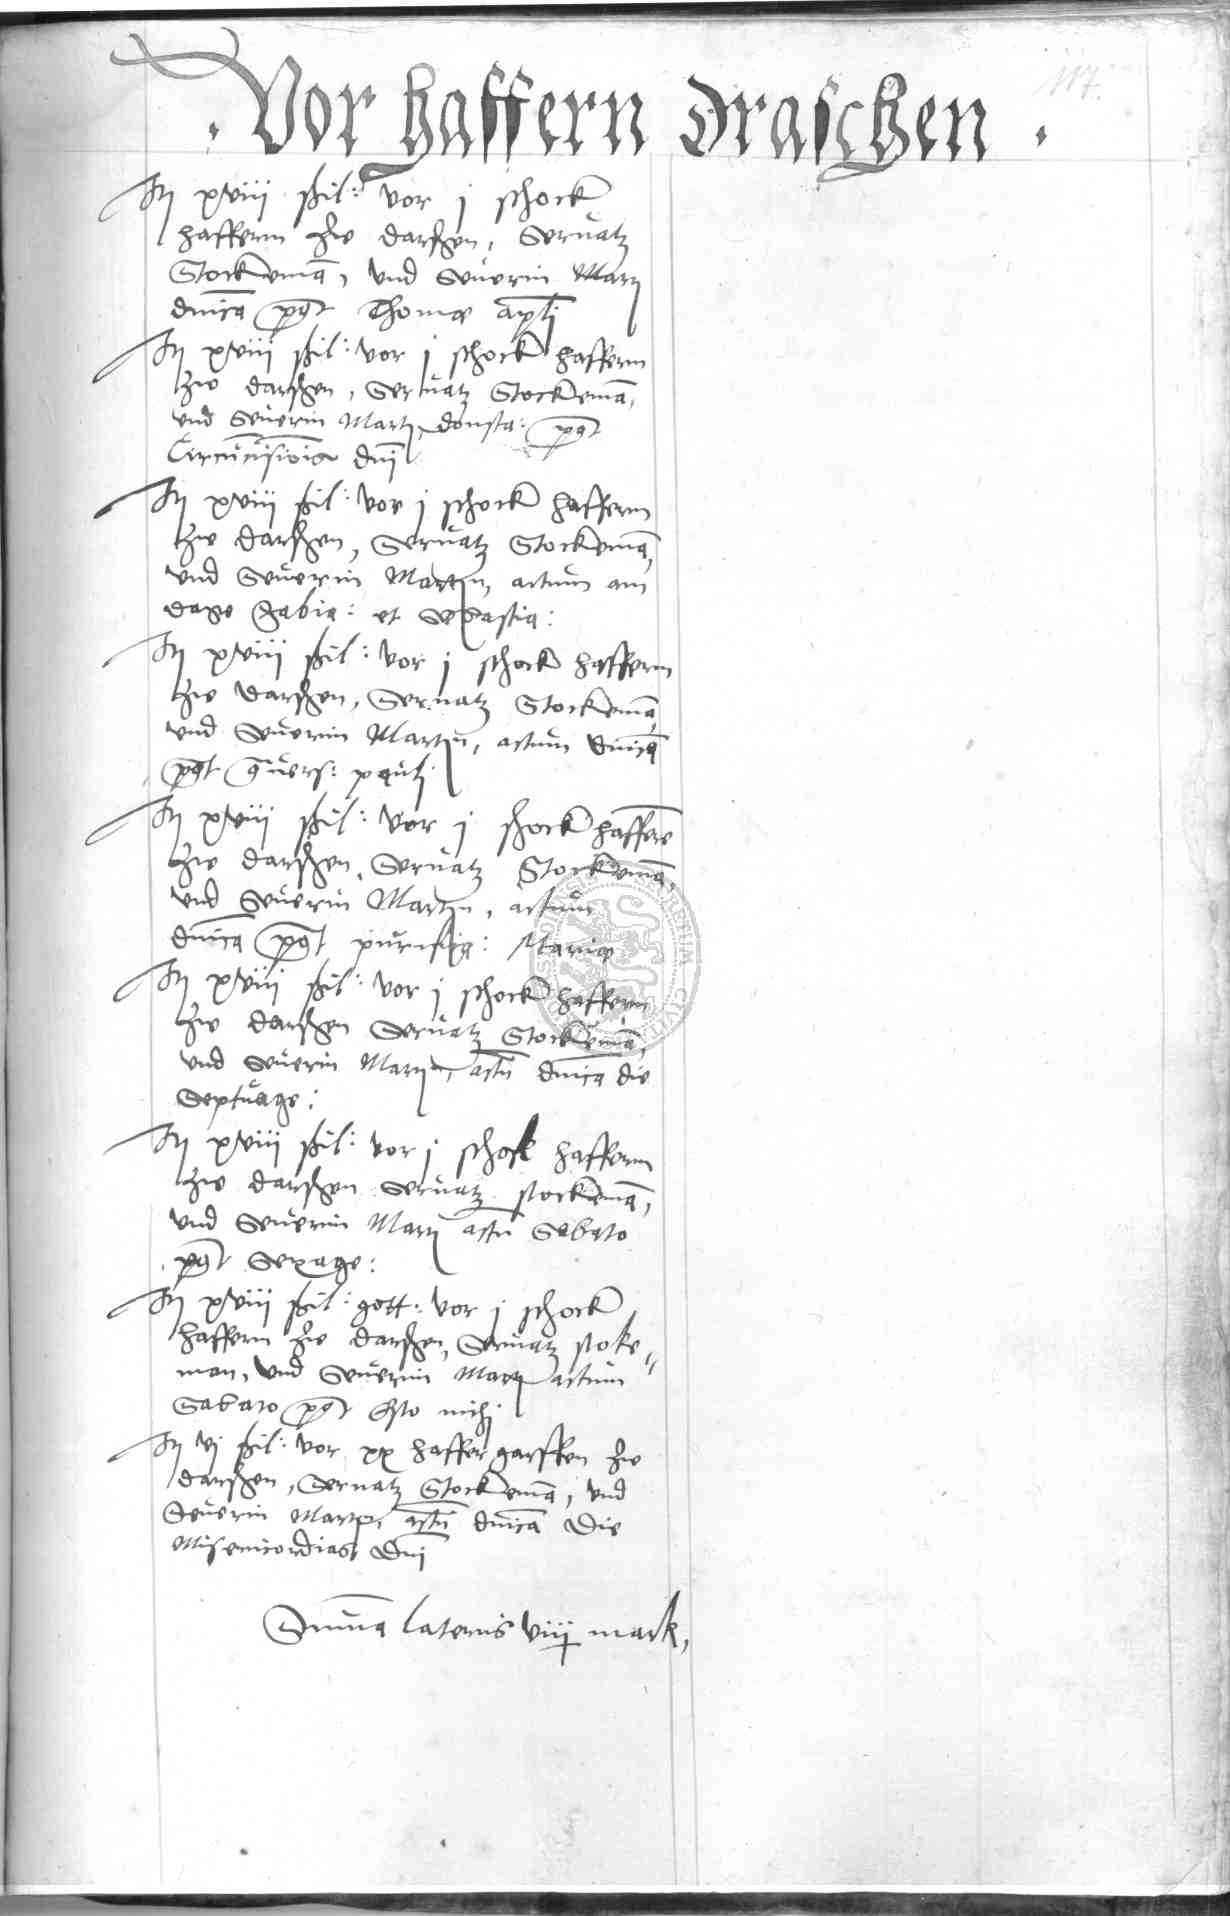 117.
. Vor haffern draschen .
Itz xviii ßil: vor j schock
haffernn zw darschen, Seruatz
Stockemā, und Seuerin Martz
dnīca pōt Thome apłi
Itz xviii ßil: vor j schock haffernn
zw darschen, Seruatz Stockemā,
und Seuerin Martz, donsta: pōt
Circūcisionis dnī
Itz xviii ßil: vor j schock haffernn
zw darschen, Seruatz Stockemā,
und Seuerin Martin, actum am
dage fabia: et Sebastia:
Itz xviii ßil: vor j schock haffernn
zw darschen, Seruatz Stockemā,
und Seuerin Martin, actum dnīca
pōt 9uers: pauli
Itz xviii ßil: vor j schock hafferē
zw darschen, Seruatz Stockemā,
und Seuerin Martin, actum
dnīca pōt purifica: Marie
Itz xviii ßil: vor j schock haffern
zw darschen Seruatz Stockemā,
und Seuerin Martz, actū dnīca die
Septuage:
Itz xviii ßil: vor j schock haffernn
zw darschen Seruatz stockemā,
und Seuerin Martz actū Sabato
pōt Sexage:
Itz xviii ßil: gott: vor j schock
haffern zw darschen, Seruatz stoke„
man, und Seuerin Martz actum
Sabato pōt Esto michi
Itz vj ßil: vor xx haffer garffen zw
darschen, Seruatz Stockemā, und
Seuerin Martz, actū dnīca Die
Misericordias Dnī
Sum̄a lateris viij mark,